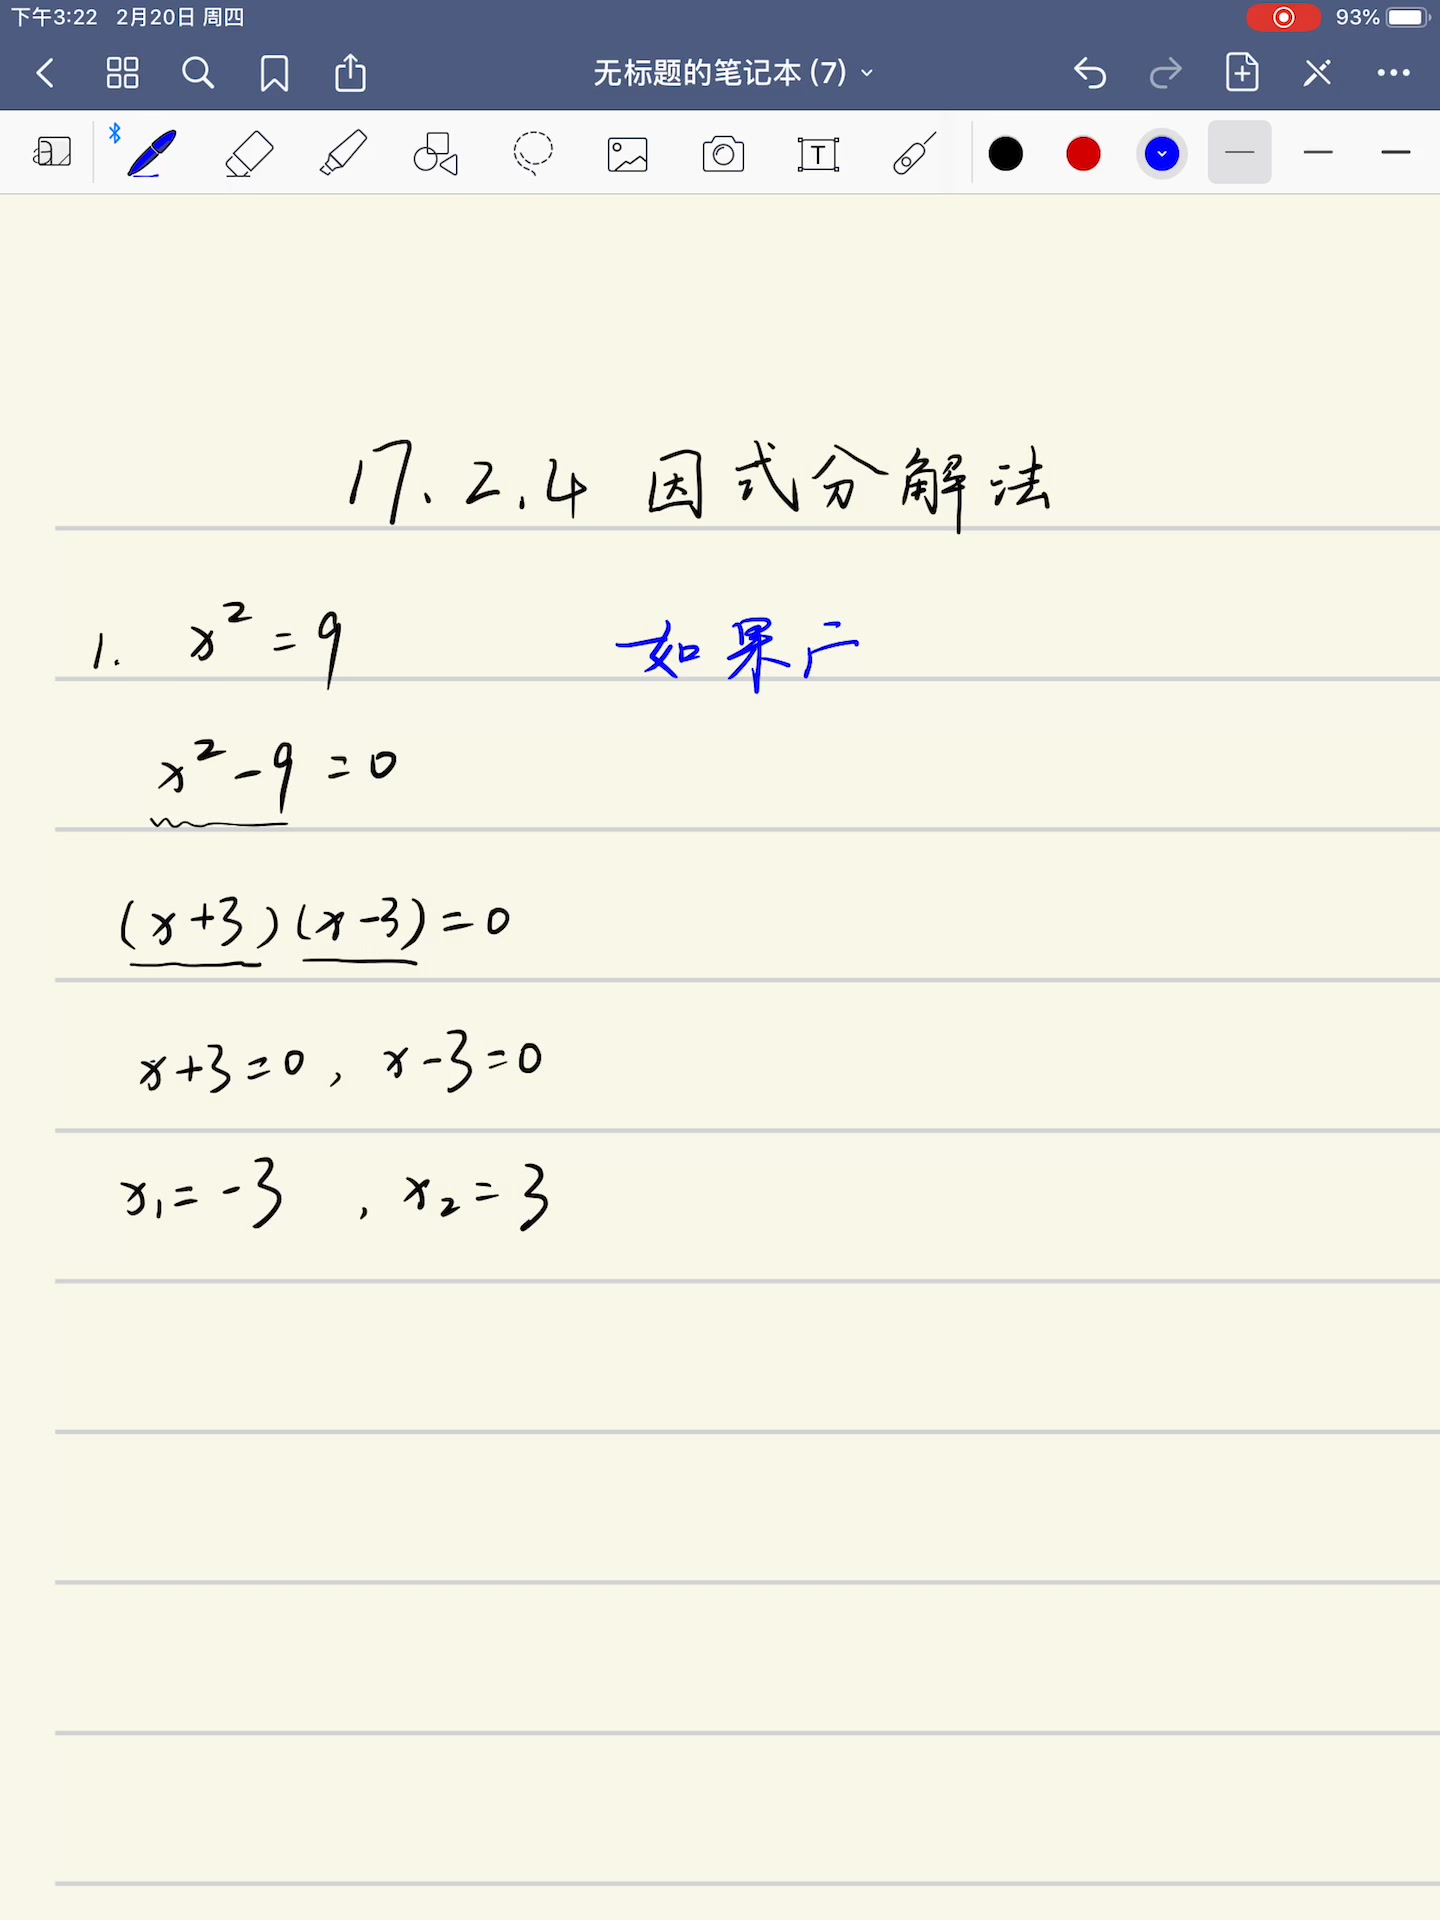 下午3:22 2月20日 周四
93%
无标题的笔记本 (7)
T
17.2.4 因式分解法
1. x² = 9
如果
x² - 9 = 0
(x+3)(x-3) = 0
x+3=0, x-3=0
x₁ = -3, x₂ = 3